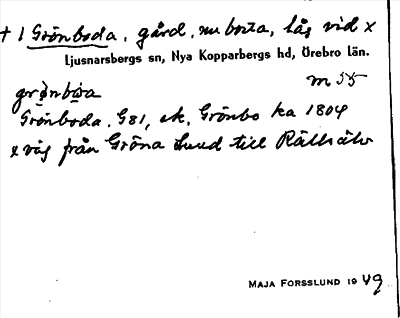 † 1 Grönboda, gård, nu borta, låg vid x
Ljusnarsbergs sn, Nya Kopparbergs hd, Örebro län.
m 55
Grönboda, G81, ek. Grönbo ka 1804
x väg från Gröna Lund till Rällsälv
MAJA FORSSLUND 19 49